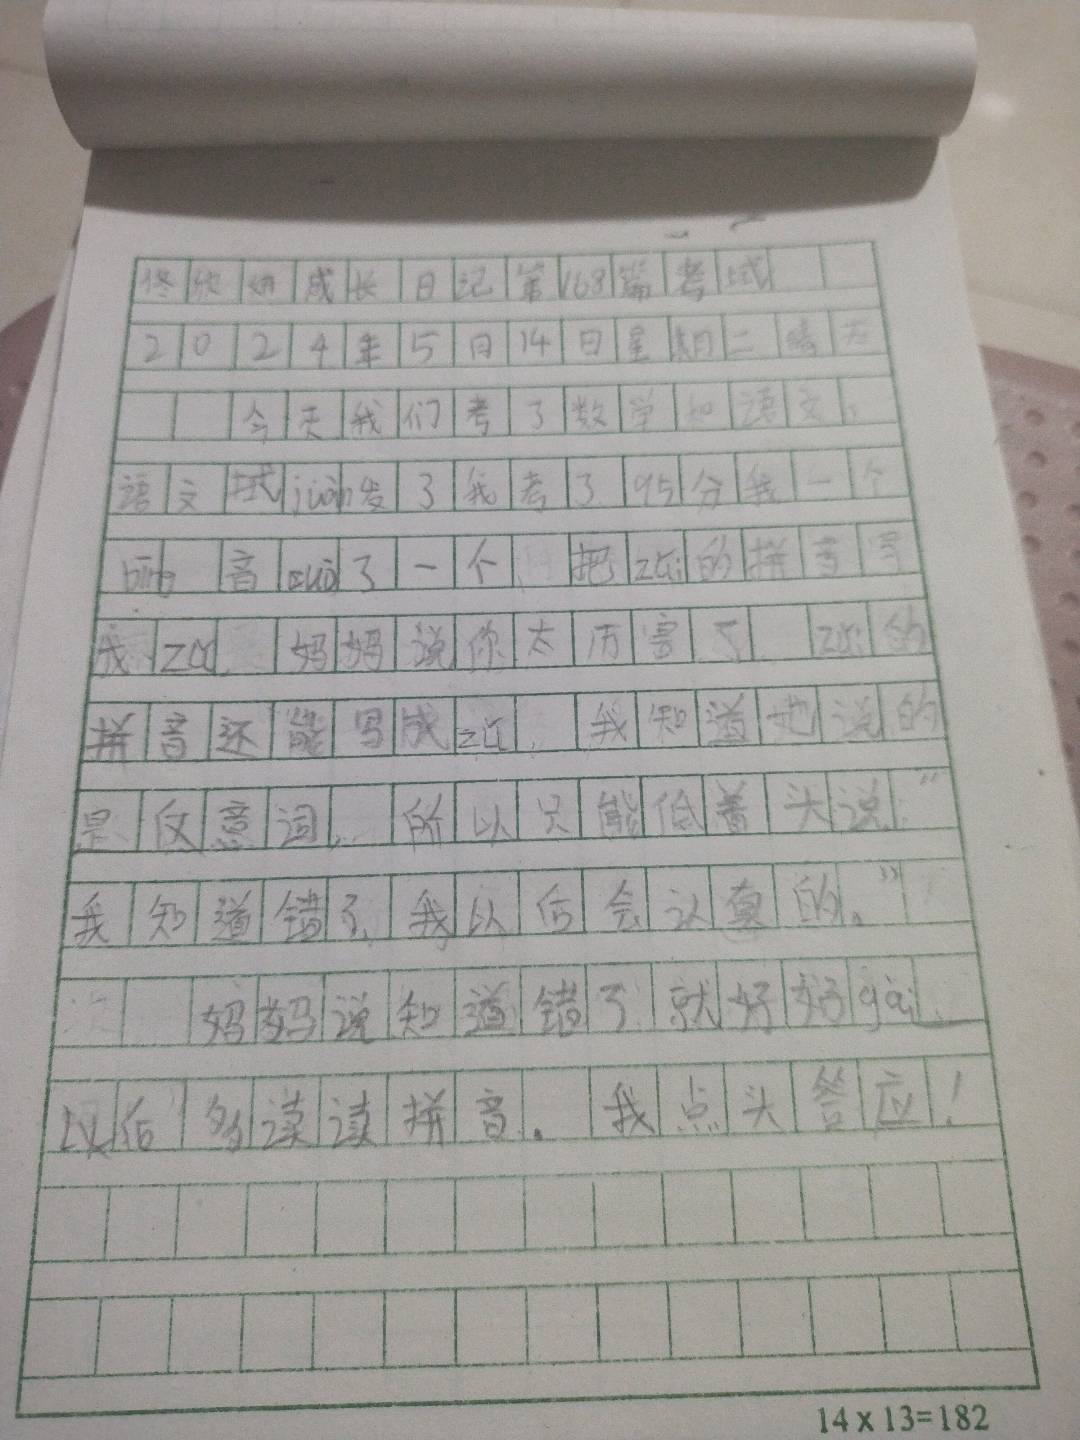 佟欣妍成长日记第168篇考试
2024年5月14日星期二晴天
今天我们考了数学和语文。
语文试juàn发了我考了95分我一个
音cuò了一个 把zāi的拼音写
成 妈妈说你太历害了 的
拼音还能写成 我知道她说的
是反意词, 所以只能低着头说:“
我知道错了,我以后会认真的。”
妈妈说知道错了就好好gǎi
以后多读读拼音。 我点头答应!
14x13=182